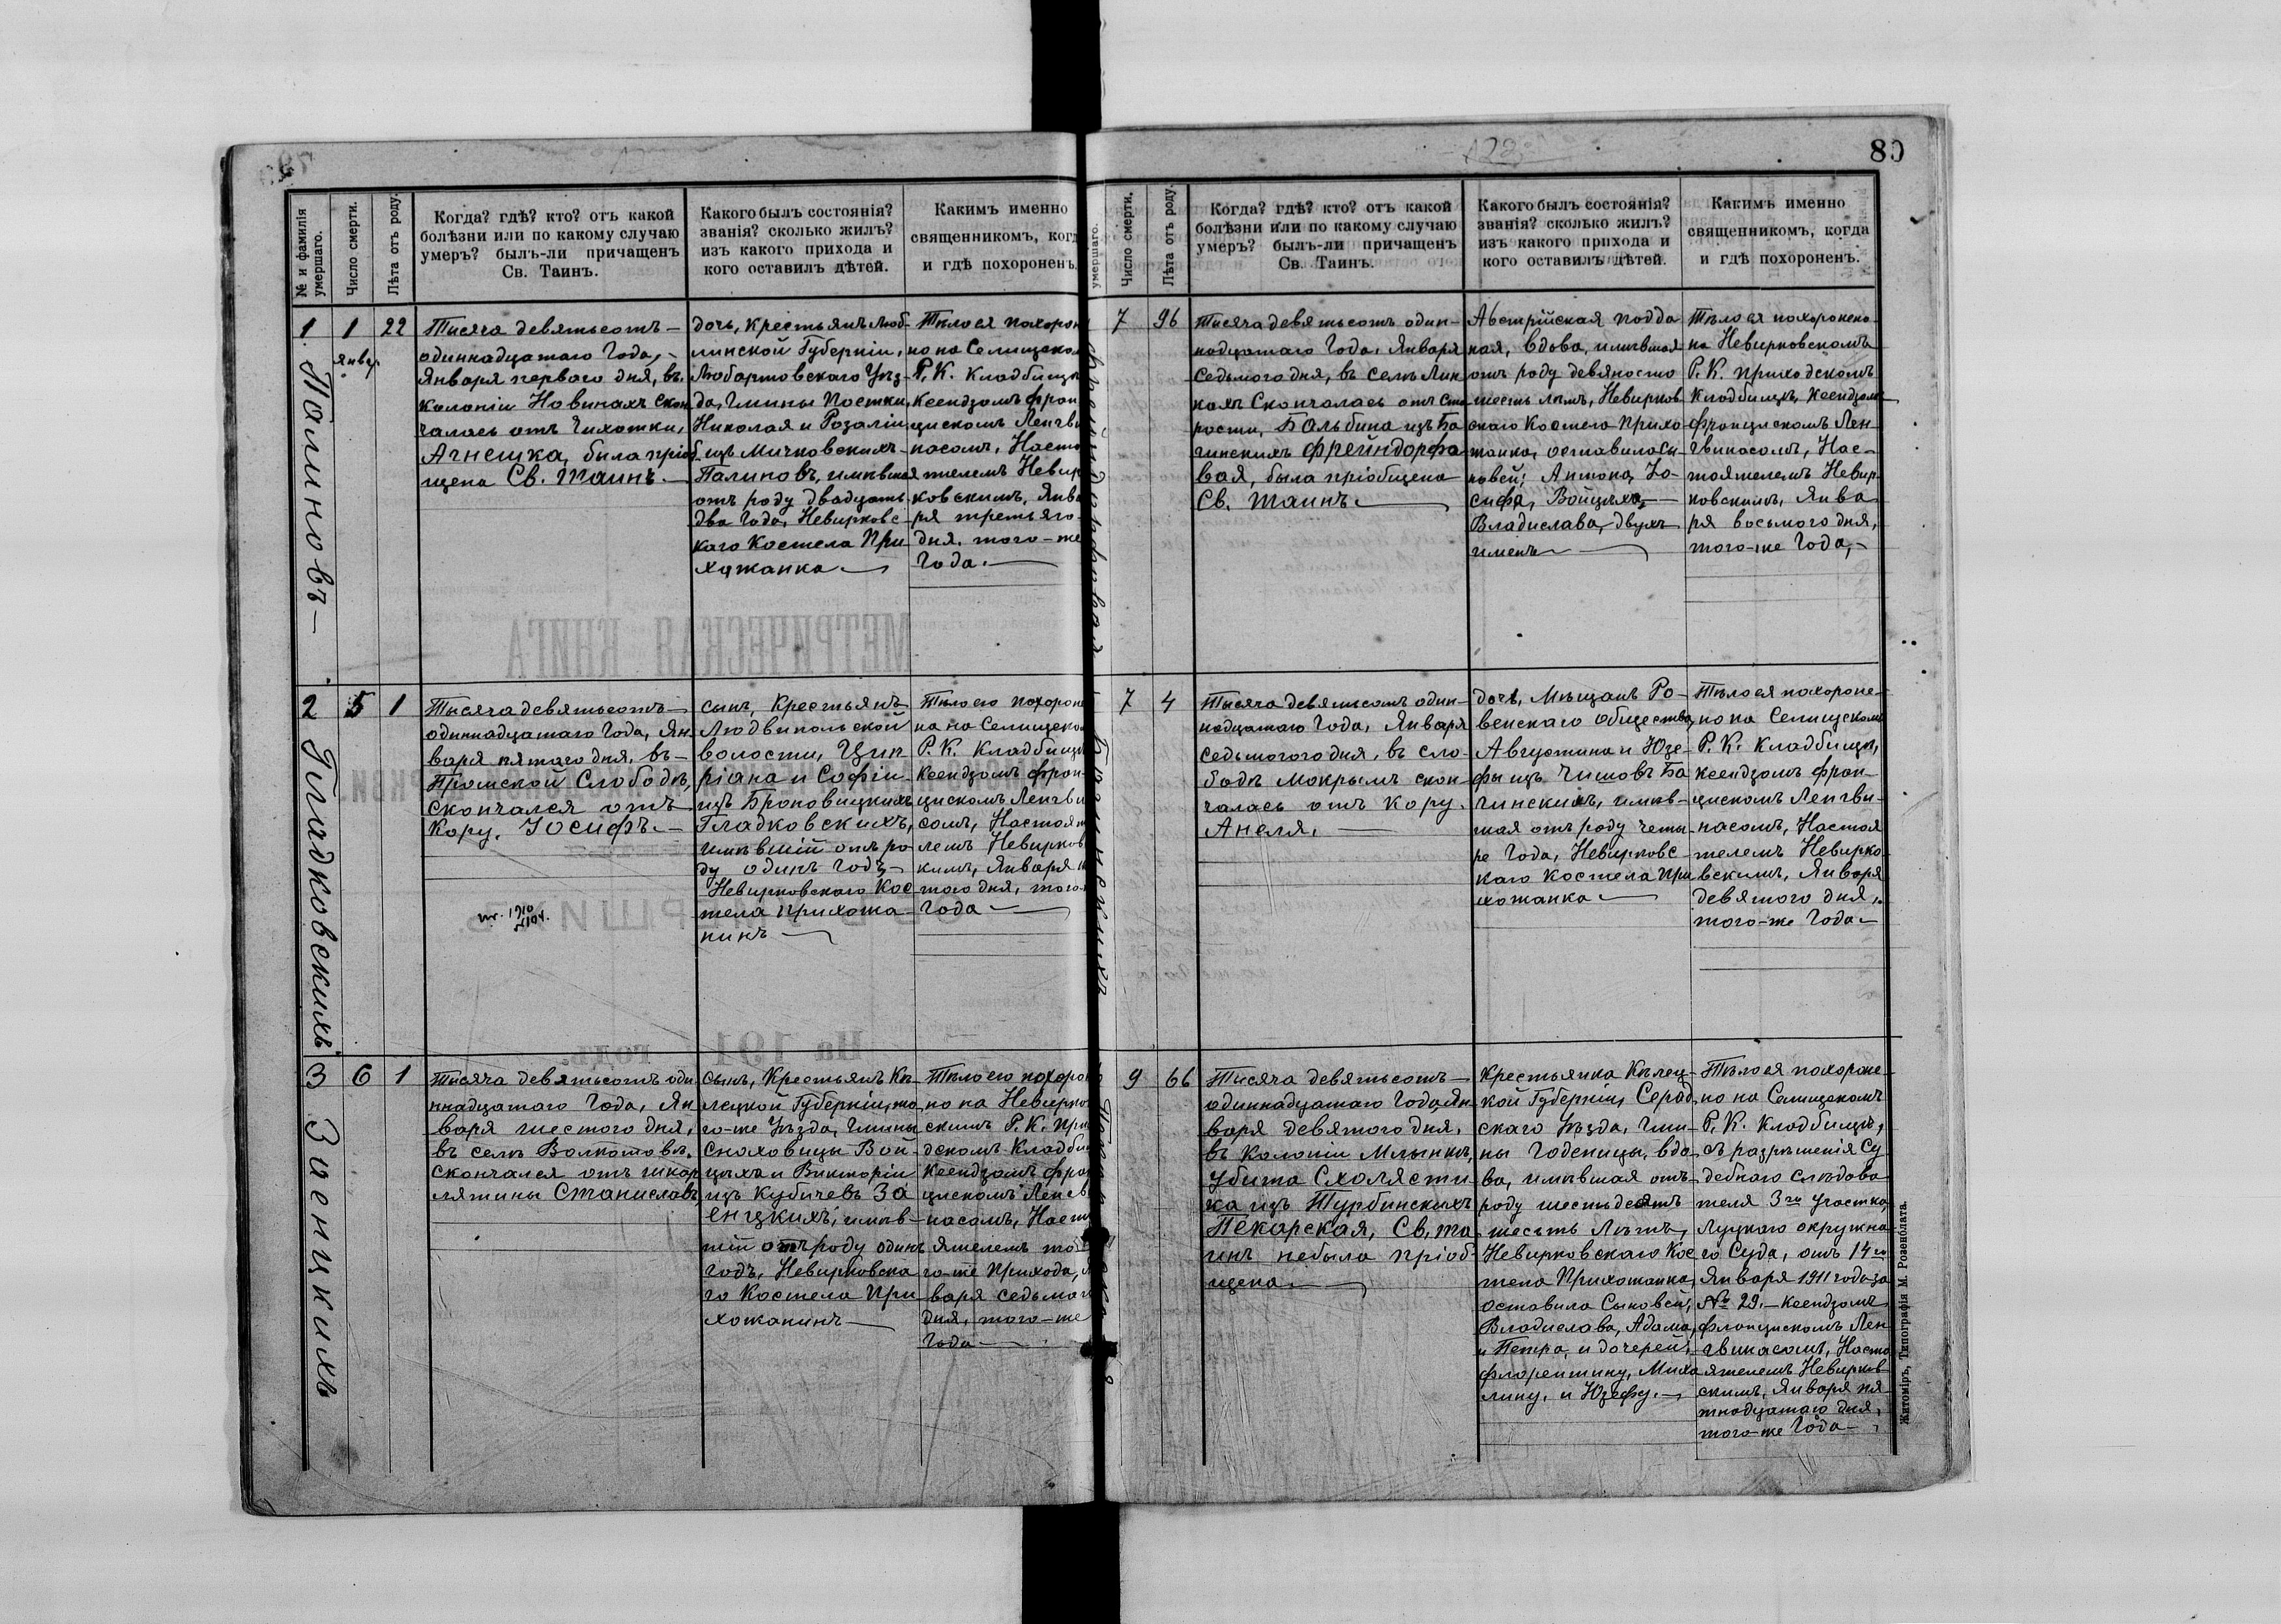 80
№ и фамилія умершаго.
Число смерти.
Лѣта отъ роду.
Когда? гдѣ? кто? отъ какой
болѣзни или по какому случаю
умеръ? былъ-ли причащенъ
Св. Таинъ.
Какого былъ состоянія?
званія? сколько жилъ?
изъ какого прихода и
кого оставилъ дѣтей.
Каким именно
священникомъ, когд
и гдѣ похороненъ.
1
Палиновъ
1
янвр.
22
Тысяча девятьсотъ
одиннадцатаго Года,
Января перваго дня, въ
колоніи Новинахъ скон
чалась отъ Чихотки,
Агнешка, была пріоб
щена Св. Таинъ.
дочь, крестьянъ Люб-
линской Губерніи,
Любартовскаго Уѣз-
да, Гмины
Николая и Розаліи
изъ Мичковскихъ
Палиновъ, имѣвшая
отъ роду двадцать
два Года, Невирковс-
каго Костела При
хожанка
Тѣло ея похорон
но на Селищском
Р. К. Кладбищѣ
Ксендзомъ Фран
цискомъ Ленгви
насомъ, Насто
ятелемъ Невир
ковскимъ, Янва
ря третьяго
дня, того-же
Года.
2
Гладковскихъ
5
1
Тысяча девятьсотъ
одиннадцатаго Года, Ян
варя пятаго дня, въ
Слободѣ,
скончался отъ
Кору, Іосифъ.
сынъ, Крестьянъ
Людвипольской
волости, Цип
ріана и Софіи
изъ Броновицкихъ
Гладковскихъ,
имѣвшій отъ ро
ду одинъ годъ
Невирковскаго Кос
тела прихожа
нинъ
Тѣло его похороне
на на Селищском
Р. К. Кладбищѣ
Ксендзомъ Фран-
цискомъ Ленгви
сомъ, Настоят
лемъ Невирков
кимъ, Января
того дня, того
Года
3
Заенцкихъ
6
1
Тысяча девятьсотъ оди
ннадцатаго Года, Ян
варя шестого дня,
въ селѣ
скончался отъ шкар
лятины Станиславъ
сынъ, Крестьянъ Кѣ-
лецкой Губерніи, то
го-же Уѣзда, Гмины
Сноховицы Вой
цѣха и Викторіи
изъ Кубичевъ За
енцкихъ, имѣв-
шій отъ роду одинъ
годъ, Невирковска
го Костела При
хожанинъ
Тѣло его похорон
но на Невирков
скимъ Р. К. при
дскомъ Кладби
Ксендзомъ Фран
цискомъ Ленгв
насомъ, Насто
ятелемъ то
го-же Прихода,
варя седьмаго
дня, того-же
Года
умершаго.
Число смерти.
Лѣта отъ роду.
Когда? гдѣ? кто? отъ какой
болѣзни или по какому случаю
умеръ? былъ-ли причащенъ
Св. Таинъ.
Какого былъ состоянія?
званія? сколько жилъ?
изъ какого прихода и
кого оставилъ дѣтей.
Каким именно
священникомъ, когда
и гдѣ похороненъ.
7
96
Тысяча девятьсотъ один-
надцатаго Года, Января
седьмого дня, въ селѣ Лин
кахъ Скончалась отъ Ста
рости, Бальбина изъ Ба
гинскихъ Фрейндорфо
вая, была пріобщена
Св. Таинъ
Австрійская подда
ная, вдова, имѣвшая
отъ роду девяносто
шесть лѣтъ, Невирков
скаго Костела Прихо
жанка, оставила сы
новей; Антона, Іо-
сифа, Войцѣха,
Владислава, двухъ
именъ
Тѣло ея похоронено
на Невирковскомъ
Р. К. приходскомъ
Кладбищѣ, Ксендзомъ
Францискомъ Лен
гвинасомъ, Нас-
тоятелемъ Невир
ковскимъ, Янва
ря восьмого дня,
того-же Года,
7
4
Тысяча девятьсотъ один-
надцатаго Года, Января
седьмогого дня, въ сло-
бодѣ Мокрымъ скон-
чалась отъ Кору.
Анеля.
дочь, Мѣщанъ Ро-
венскаго общества,
Августина и Юзе-
фы изъ Чишовъ Ба
гинскихъ, имѣв-
шая отъ роду четы-
ре Года, Невирковс-
каго Костела При
хожанка
Тѣло ея похороне-
но на Селищскомъ
Р. К. Кладбищѣ,
Ксендзомъ Фран-
цискомъ Ленгви-
насомъ, Настоя
телемъ Невирко
вскимъ, Января
девятого дня,
того-же Года
9
66
Тысяча девятьсотъ
одиннадцатаго Года, Ян
варя девятого дня,
въ Колоніи Млынкѣ,
Убита Схоласти
ка изъ Турбинскихъ
Пекарская, Св. та
инъ небыла пріоб-
щена.
Крестьянка Кѣлец-
кой Губерніи,
скаго Уѣзда, Гми-
ны Годеницы, вдо
ва, имѣвшая отъ
роду шестьдесятъ
шесть Лѣтъ,
Невирковскаго Кос
тела Прихожанка,
оставила Сыновей;
Владислава, Адама,
и Петра, и дочерей;
Флорентину, Миха
лину, и Юзефу.
Тѣло ея похороне-
но на Селищскомъ
Р. К. Кладбищѣ,
съ разрѣшенія Су
дебнаго Слѣдова
теля 3го участка,
Луцкаго окружна
го Суда, отъ 14го
Января 1911 года за
№ 29. Ксендзомъ
Францискомъ Лен
гвинасомъ, Насто
ятелемъ Невирков
скимъ, Января пя
тнадцатаго дня,
того-же Года
Житоміръ, Типографія М. Розенблата.